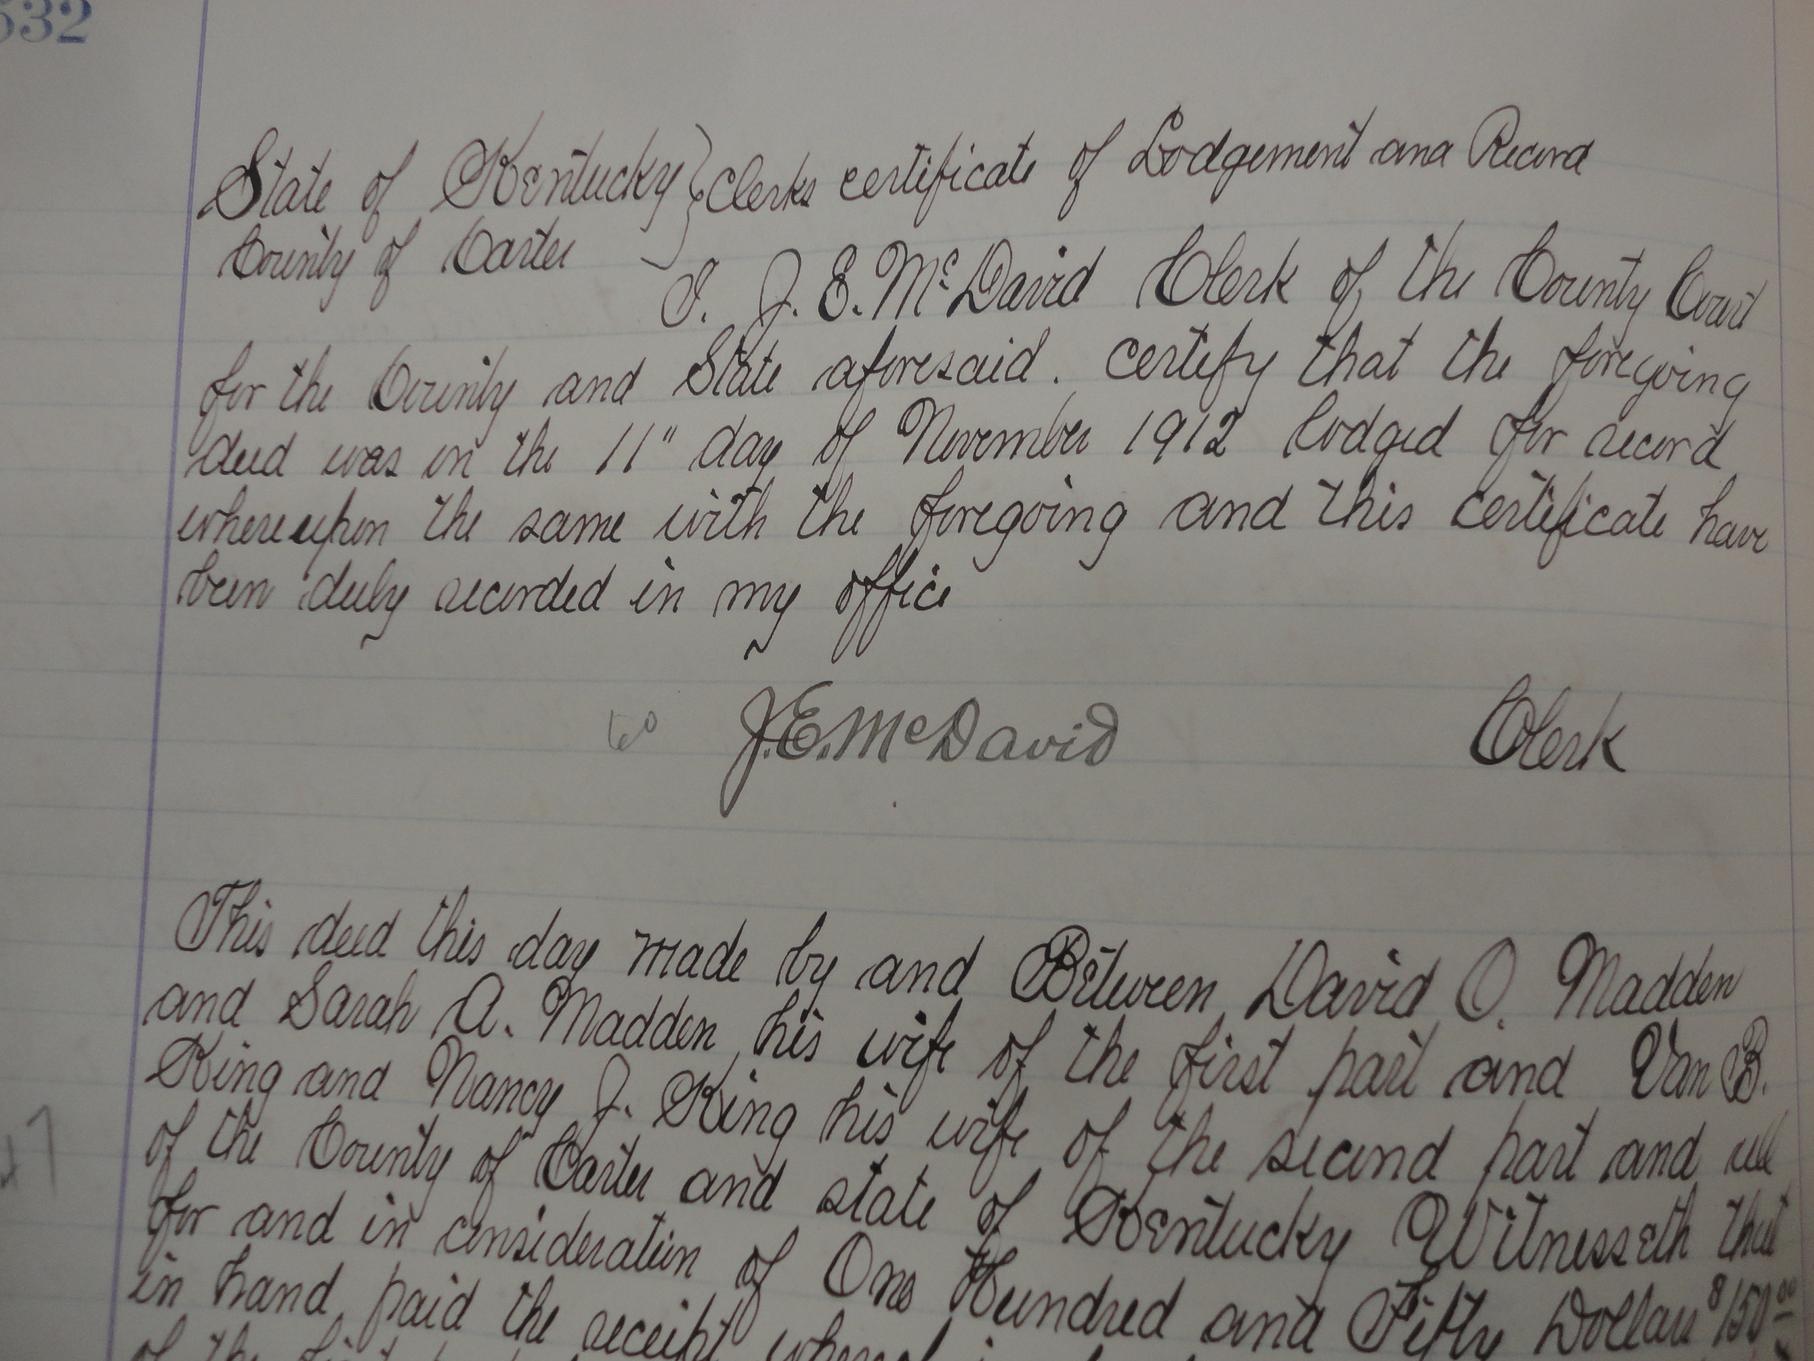 532
State of Kentucky } Clerks certificate of Lodgement and Record
County of Carter
I. J. E. McDavid Clerk of the County Court
for the County and State aforesaid. certify that the foregoing
deed was on the 11" day of November 1912 lodged for record
whereupon the same with the foregoing and this certificate have
been duly recorded in my office
60 J.E. McDavid Clerk
This deed this day made by and Between David O. Madden
and Sarah A. Madden, his wife of the first part and Van B.
King and Nancy J. King his wife of the second part and all
47
of the County of Carter and state of Kentucky Witnesseth that
for and in consideration of One Hundred and Fifty Dollars $150.00
in hand paid the receipt whereof
of the first